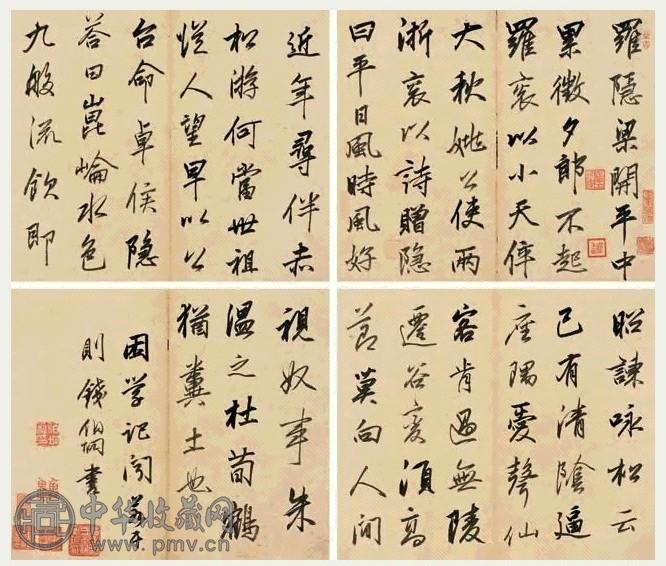 羅隱梁開平中
累徵夕郎不起
羅衮以小天倅
大秋姚公使兩
浙衮以詩贈隐
曰平日風時風好
近年尋伴赤
松游何當世祖
從人望早以公
台命卓侯隐
答曰崑崙水色
九般流飲即
昭諫咏松云
已有清陰逼
座隅愛聲仙
客肯過無陵
遷谷变須高
莭莫向人间
視奴事朱
温之杜荀鶴
猶糞土也
困学记闻若干
則錢伯坰書
中华收藏网
www.pmv.cn